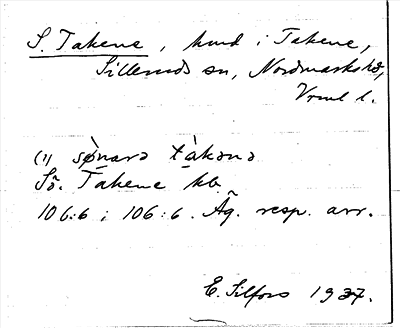 S. Takene, hmd i Takene,
Silleruds sn, Nordmarks hd,
Vrml l.
(1) sø̀narə tàkənə
Sö. Takene kb
106:6; 106:6. Äg. resp. arr.
E. Silfors 1937.